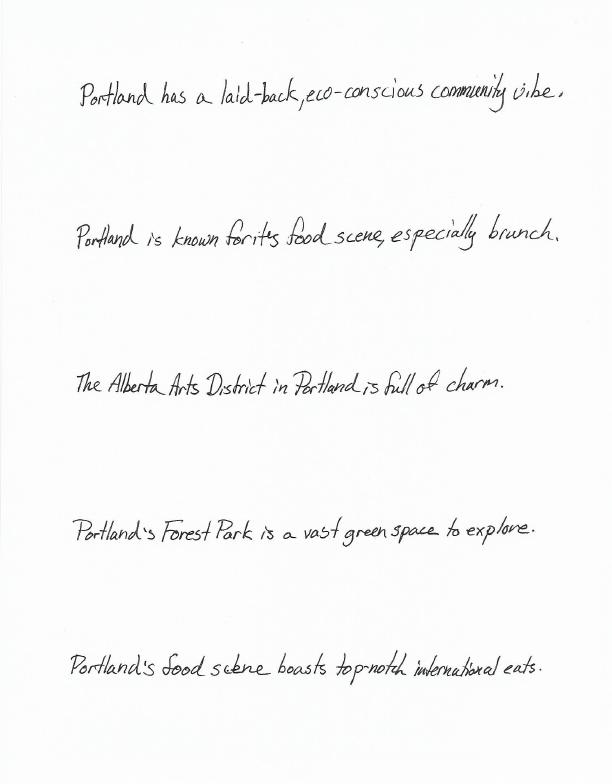 Portland has a laid-back, eco-conscious community vibe.
Portland is known for it's food scene, especially brunch.
The Alberta Arts District in Portland is full of charm.
Portland's Forest Park is a vast green space to explore.
Portland's food scene boasts top-notch international eats.